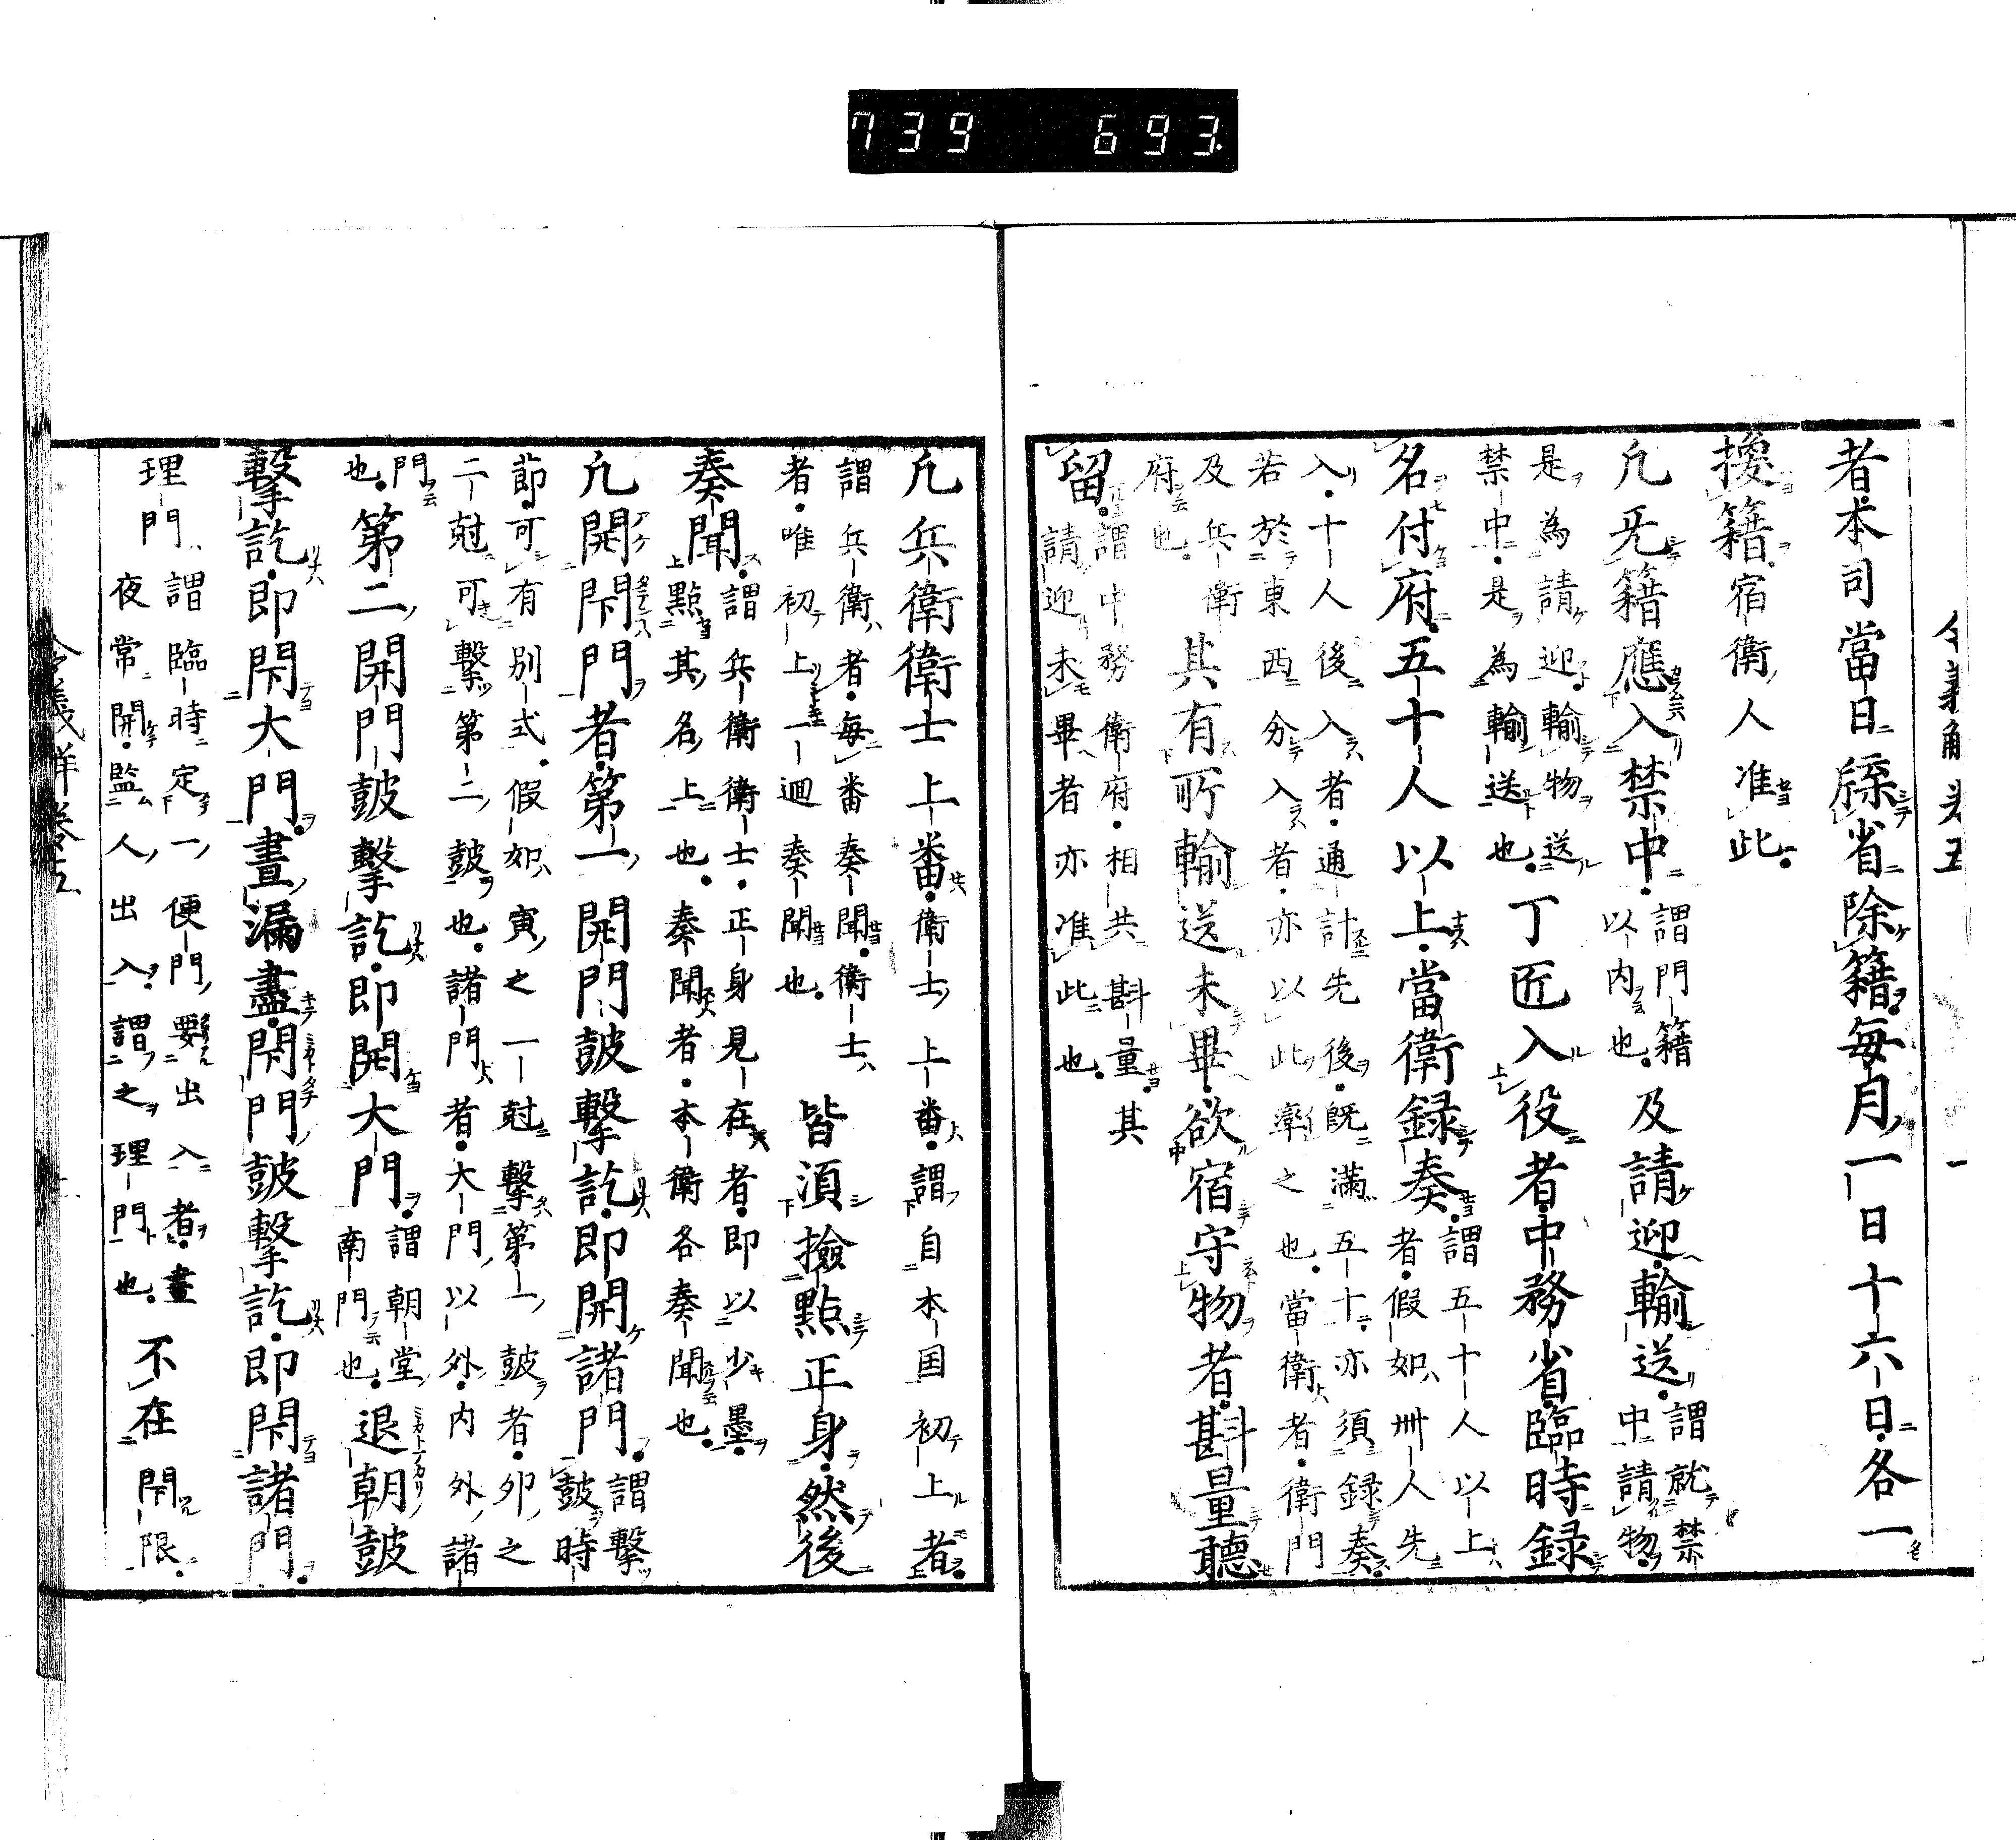 739 693.
者本司當日牒省除籍每月一日十六日各一
換籍宿衛人准此
凢无籍應入禁中謂門籍
以内也及請迎輸送謂就禁
中請物
是為請迎輸物送
禁中是為輸送也丁匠入役者中務省臨時錄
名付府五十人以上當衛録奏謂五十人以上
者假如卅人先
入十人後入者通計先後既滿五十亦須録奏
若於東西分入者亦以此率之也當衛者衛門
及兵衛
府也其有所輸送未畢欲宿守物者斟量聽
留謂中務衛府相共斟量其
請迎未畢者亦准此也
凢兵衛衛士上番衛士上番謂自本国初上者
謂兵衛者每番奏聞衛士
者唯初上一迴奏聞也皆須撿點正身然後
奏聞謂兵衛衛士正身見在者即以少墨
點其名上也奏聞者本衛各奏聞也
凢開閇門者第一開門皷擊訖即開諸門謂擊
皷時
節可有別式假如寅之一尅擊第一皷者卯之
二尅可擊第二皷也諸門者大門以外内外諸
門
也第二開門皷擊訖即開大門謂朝堂
南門也退朝皷
擊訖即閇大門晝漏盡閇門皷擊訖即閇諸門
理門謂臨時定一便門要出入者晝
夜常開監人出入謂之理門也不在閇限